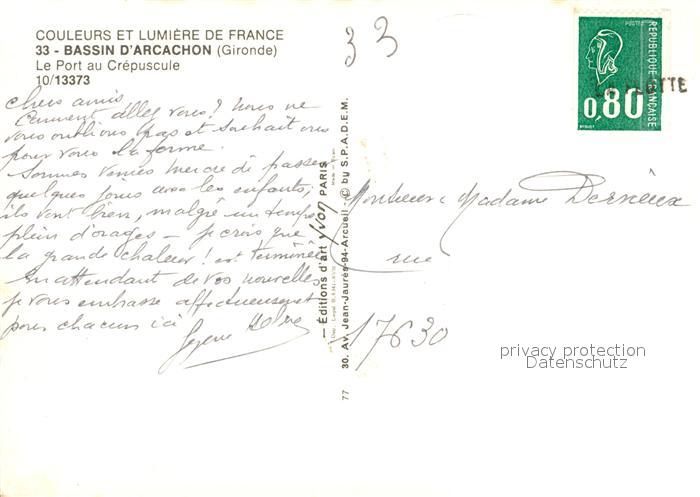 COULEURS ET LUMIÈRE DE FRANCE
33 - BASSIN D'ARCACHON (Gironde)
Le Port au Crépuscule
10/13373
33
chers amis
Comment allez vous? nous ne
vous oublions pas et souhaitons
pour vous la forme.
Sommes venus de passer
quelques jours avec les enfants,
ils vont bien, malgré un temps
plein d'orages - je crois que
la grande chaleur! est terminée
En attendant de vos nouvelles
je vous embrasse affectueusement
pour chacun ici
— Éditions d'art yvon PARIS
30. Av. Jean-Jaurès-94-Arcueil - © by S.P.A.D.E.M.
77
POSTES
RÉPUBLIQUE FRANÇAISE
0,80
LA FLOTTE
Monsieur Madame
rue
17630
privacy protection
Datenschutz